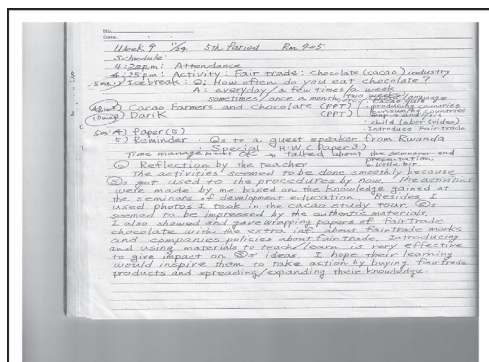 No.
Date
Week 9 11/29 5th Period Rm 905
Schedule:
4:20pm: Attendance
4:25pm: Activity: Fair trade: Chocolate (cacao) industry
5min 1) Icebreak: Q: How often do you eat chocolate?
A: everyday / a few times / a week
sometimes / once a month, etc. two weeks /
2) Cacao Farmers and Chocolate (PPT) producing countries
3) Dari K (PPT) consuming countries
map analysis
child labor (video)
Introduce Fairtrade
5m 4) Paper (5)
5) Reminder: Qs to a guest speaker from Rwanda
: Special H.W. (Paper 3)
Time management OK → talked about the semester-end
presentation
a little bit
Reflection by the teacher
The activities seemed to be done smoothly because
Ss got used to the procedures by now. The activities
were made by me based on the knowledge gained at
the seminars of development education. Besides I
used photos I took in the cacao study tour. Ss
seemed to be impressed by the authentic materials.
I also showed and gave wrapping papers of fairtrade
chocolate with the extra inf. about fairtrade marks
and companies policies about fairtrade. Introducing
and using materials to teach/learn is very effective
to give impact on Ss' ideas. I hope their learning
would inspire them to take action by buying fairtrade
products and spreading/expanding their knowledge.